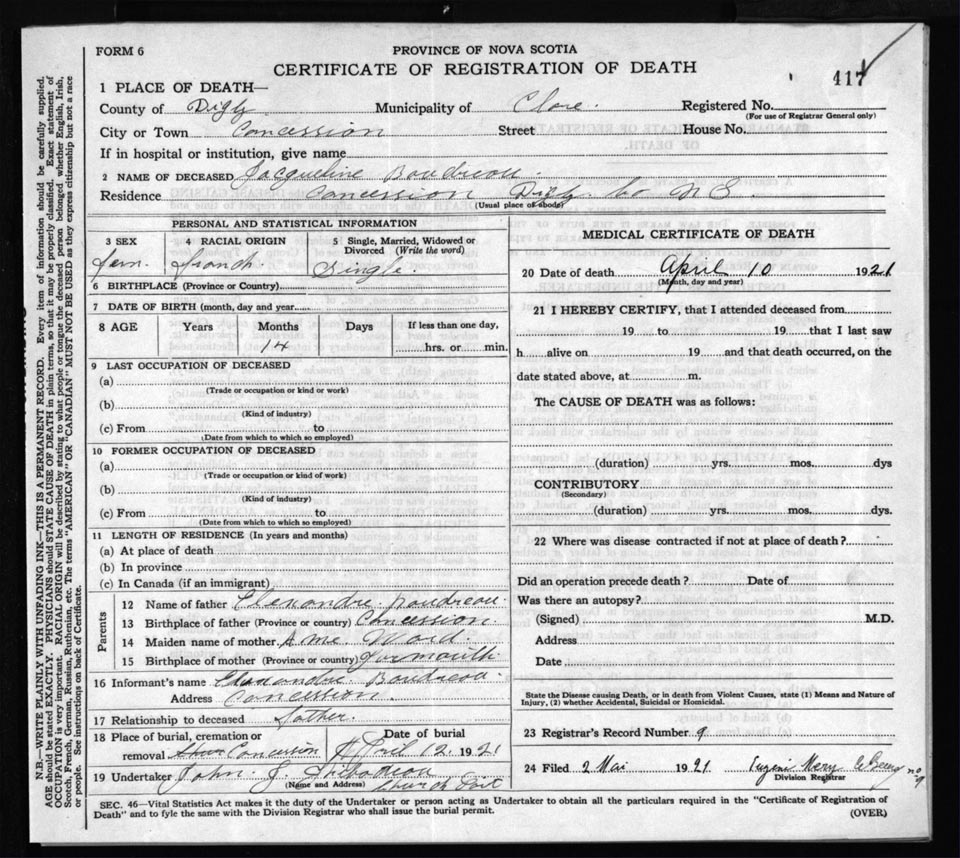 FORM 6
PROVINCE OF NOVA SCOTIA
CERTIFICATE OF REGISTRATION OF DEATH
417
1 PLACE OF DEATH—
County of Digby Municipality of Clare. Registered No.
(For use of Registrar General only)
City or Town Concession Street House No.
If in hospital or institution, give name
2 NAME OF DECEASED Jacqueline Boudreau.
Residence Concession Digby Co N S.
(Usual place of abode)
PERSONAL AND STATISTICAL INFORMATION
3 SEX 4 RACIAL ORIGIN 5 Single, Married, Widowed or Divorced (Write the word)
Fem. French. Single.
6 BIRTHPLACE (Province or Country)
7 DATE OF BIRTH (month, day and year)
8 AGE Years Months Days If less than one day,
14 hrs. or min.
9 LAST OCCUPATION OF DECEASED
(a)
(Trade or occupation or kind or work)
(b)
(Kind of industry)
(c) From to
(Date from which to which so employed)
10 FORMER OCCUPATION OF DECEASED
(a)
(Trade or occupation or kind or work)
(b)
(Kind of industry)
(c) From to
(Date from which to which so employed)
11 LENGTH OF RESIDENCE (In years and months)
(a) At place of death
(b) In province
(c) In Canada (if an immigrant)
Parents
12 Name of father Elexandre Boudreau.
13 Birthplace of father (Province or Country) Concession.
14 Maiden name of mother
15 Birthplace of mother (Province or country) Yarmouth
16 Informant's name Elexandre Boudreau.
Address Concession.
17 Relationship to deceased father.
18 Place of burial, cremation or removal Concession Date of burial April 12. 1921
19 Undertaker John. J. Thibodeau
(Name and Address) Church Point
MEDICAL CERTIFICATE OF DEATH
20 Date of death April 10 1921
(Month, day and year)
21 I HEREBY CERTIFY, that I attended deceased from
19 to 19 that I last saw
h alive on 19 and that death occurred, on the
date stated above, at
The CAUSE OF DEATH was as follows:
(duration) yrs. mos. dys
CONTRIBUTORY
(Secondary)
(duration) yrs. mos. dys.
22 Where was disease contracted if not at place of death?
Did an operation precede death? Date of
Was there an autopsy?
(Signed) M.D.
Address
Date
State the Disease causing Death, or in death from Violent Causes, state (1) Means and Nature of
Injury, (2) whether Accidental, Suicidal or Homicidal.
23 Registrar's Record Number 9
24 Filed 2 Mai 1921.
Division Registrar
SEC. 46—Vital Statistics Act makes it the duty of the Undertaker or person acting as Undertaker to obtain all the particulars required in the "Certificate of Registration of
Death" and to fyle the same with the Division Registrar who shall issue the burial permit. (OVER)
N.B.—WRITE PLAINLY WITH UNFADING INK—THIS IS A PERMANENT RECORD. Every item of information should be carefully supplied.
AGE should be stated EXACTLY. PHYSICIANS should STATE CAUSE OF DEATH in plain terms, so that it may be properly classified. Exact statement of
OCCUPATION is very important. RACIAL ORIGIN will be described by stating to what people or tongue the deceased person belonged whether English, Irish,
Scotch, French, German, Russian, Ruthenian, etc. The terms "AMERICAN" or "CANADIAN" MUST NOT BE USED as they express citizenship but not a race
or people. See instructions on back of Certificate.